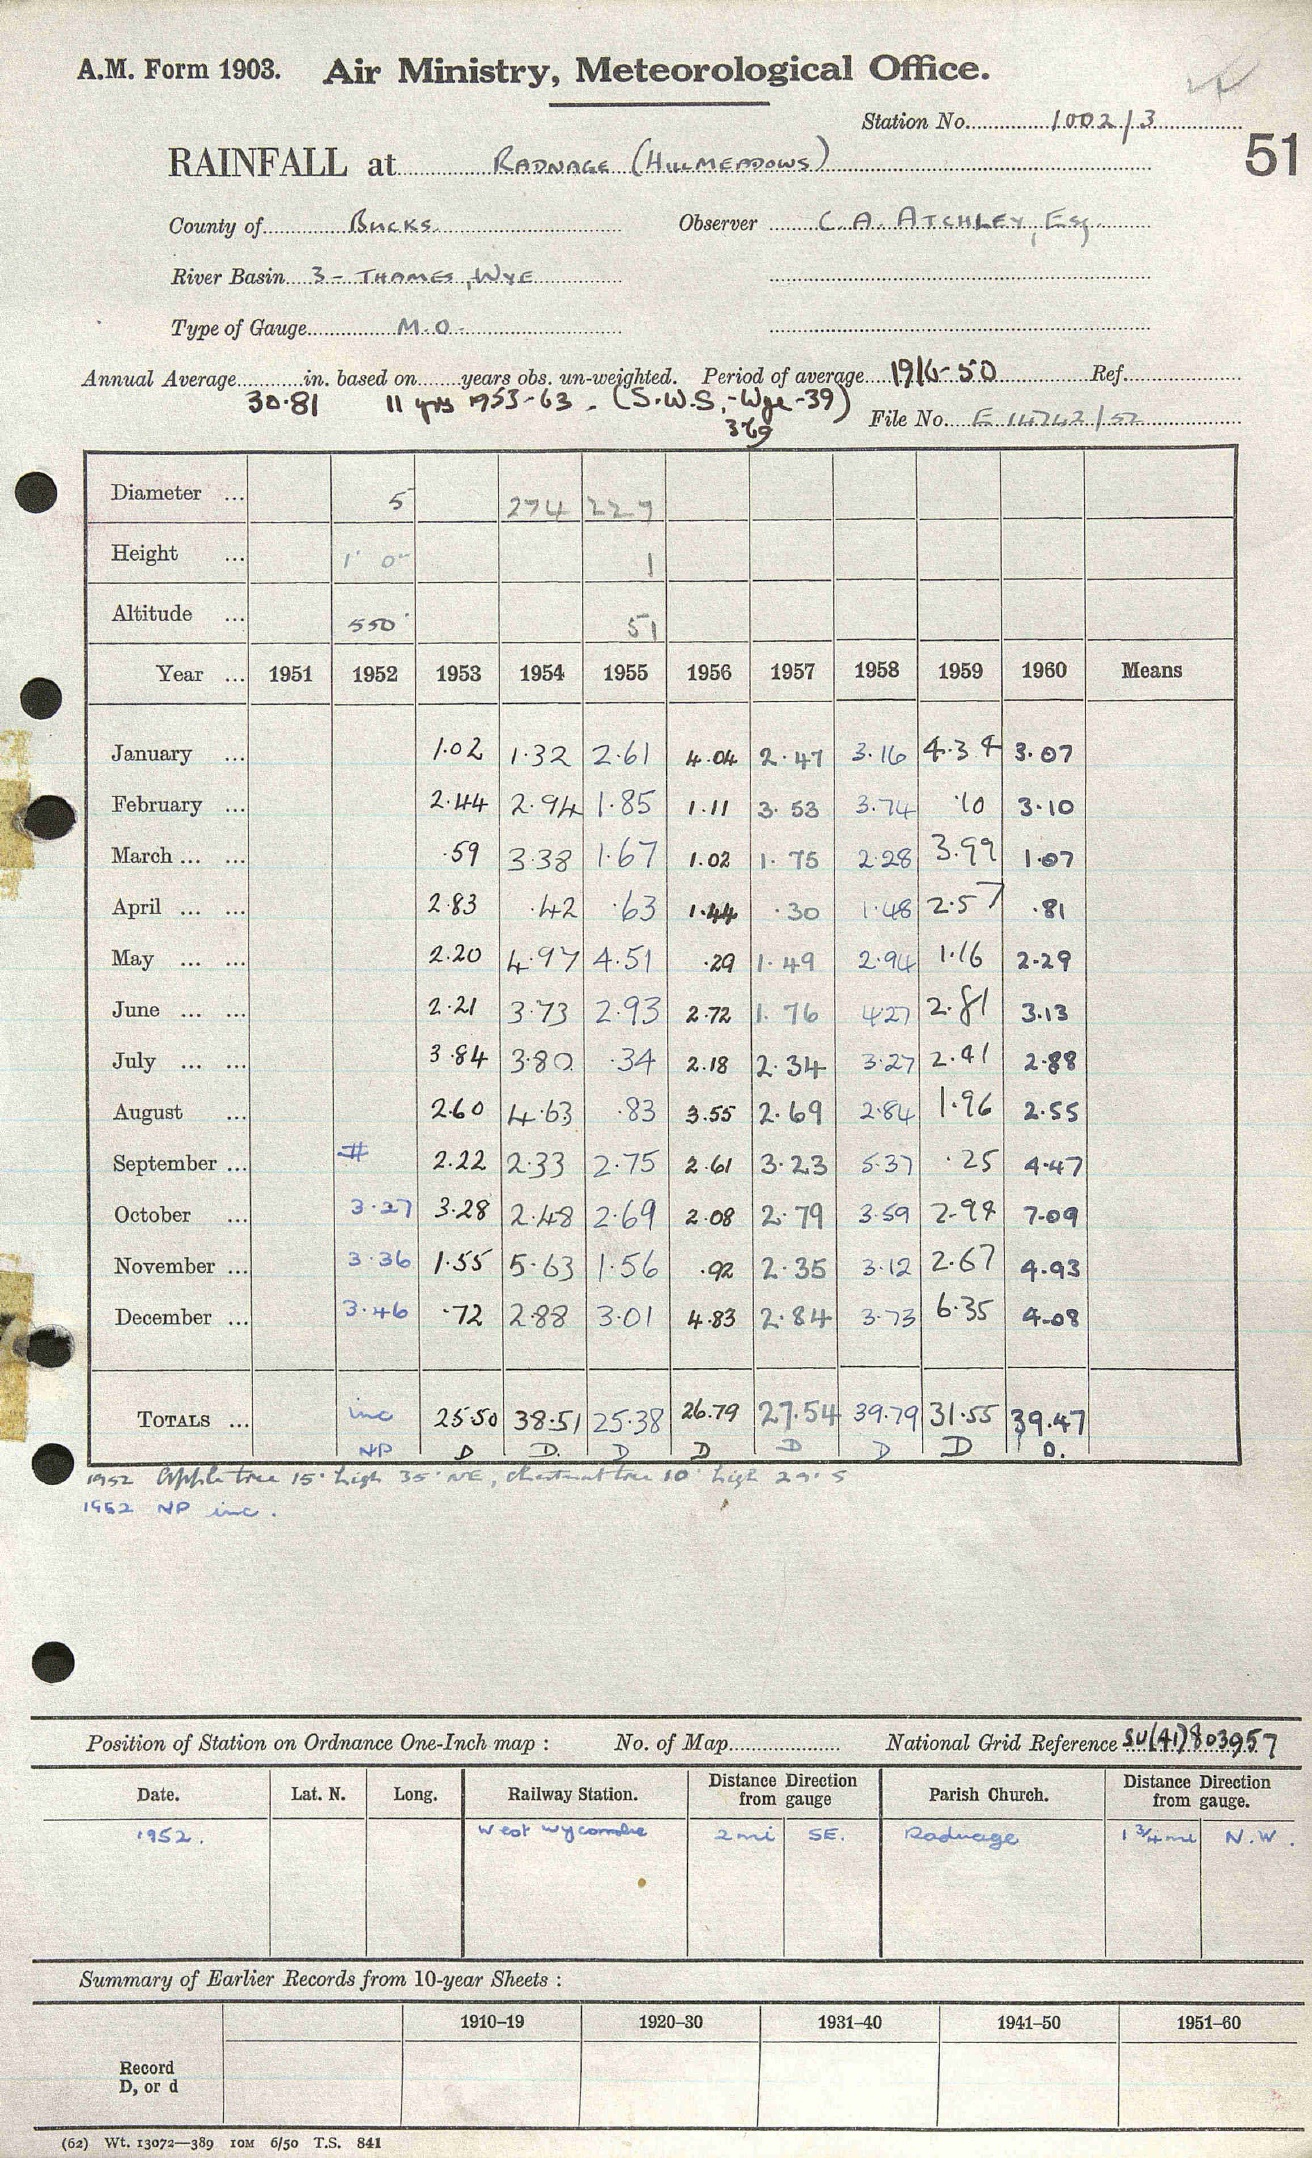 A.M. Form 1903. Air Ministry, Meteorological Office.
Station No. 1002/3
51
RAINFALL at RADNAGE (HILLMEADOWS)
County of BUCKS Observer C. A. ATCHLEY, Esq.
River Basin 3 - THAMES, WYE
Type of Gauge M.O.
Annual Average in. based on years obs. un-weighted. Period of average 1916-50 Ref.
30.81 11 yrs 1953-63. (S.W.S,-Wye-39)
369
File No. E 14742/52
Diameter ... 5 274 227
Height ... 1' 0" 1
Altitude ... 550' 51
Year ... 1951 1952 1953 1954 1955 1956 1957 1958 1959 1960 Means
January ... 1.02 1.32 2.61 4.04 2.47 3.16 4.34 3.07
February ... 2.44 2.94 1.85 1.11 3.53 3.74 .10 3.10
March ... ... .59 3.38 1.67 1.02 1.75 2.28 3.99 1.07
April ... ... 2.83 .42 .63 1.44 .30 1.48 2.57 .81
May ... ... 2.20 4.97 4.51 .29 1.49 2.94 1.16 2.29
June ... ... 2.21 3.73 2.93 2.72 1.76 4.27 2.81 3.13
July ... ... 3.84 3.80 .34 2.18 2.34 3.27 2.41 2.88
August ... 2.60 4.63 .83 3.55 2.69 2.84 1.96 2.55
September ... # 2.22 2.33 2.75 2.61 3.23 5.37 .25 4.47
October ... 3.27 3.28 2.48 2.69 2.08 2.79 3.59 2.94 7.09
November ... 3.36 1.55 5.63 1.56 .92 2.35 3.12 2.67 4.93
December ... 3.46 .72 2.88 3.01 4.83 2.84 3.73 6.35 4.08
TOTALS ... inc 25.50 38.51 25.38 26.79 27.54 39.79 31.55 39.47
NP D D. D D D D D D.
1952 Apple tree 15' high 35' NE, chestnut tree 10' high 29' S
1952 NP inc.
Position of Station on Ordnance One-Inch map : No. of Map National Grid Reference SU(41)803957
Date. Lat. N. Long. Railway Station. Distance from gauge Direction Parish Church. Distance from gauge. Direction
1952. West Wycombe 2 mi SE. Radnage 1 3/4 mi N.W.
Summary of Earlier Records from 10-year Sheets :
1910–19 1920–30 1931–40 1941–50 1951–60
Record
D, or d
(62) Wt. 13072—389 10M 6/50 T.S. 841